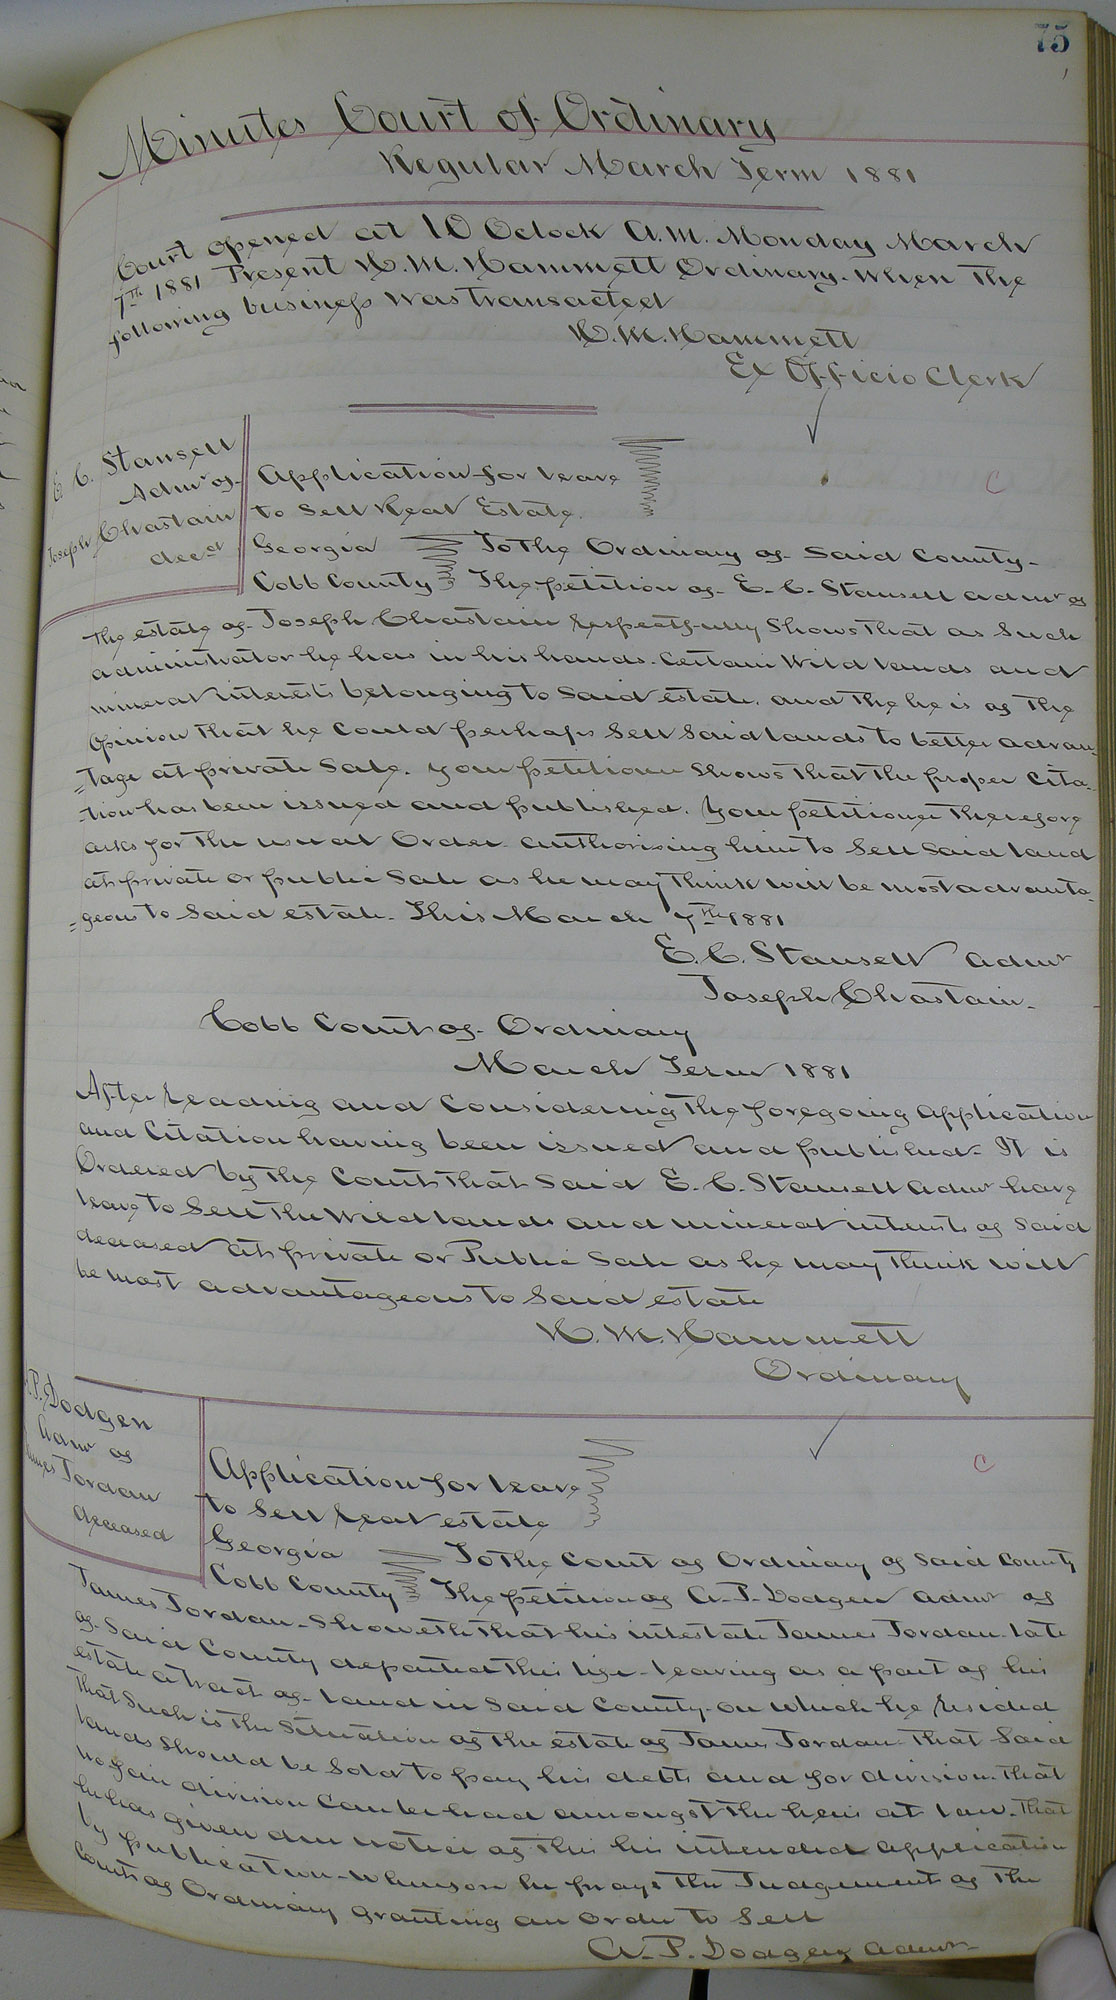 75
Minutes Court of Ordinary
Regular March Term 1881
Court opened at 10 Oclock A.M. Monday March
7th 1881 Present H. M. Hammett Ordinary. When the
following business was transacted
H. M. Hammett
Ex Officio Clerk
E. C. Stansell
Admr of
Joseph Chastain
decd
C
Application for leave
to Sell Real Estate.
Georgia To the Ordinary of Said County.
Cobb County The petition of E. C. Stansell admr of
the estate of Joseph Chastain respectfully Shows that as Such
administrator he has in his hands. Certain Wild lands and
mineral interests belonging to Said estate. and the he is of the
Opinion that he Could perhaps Sell Said lands to better advan-
=tage at private Sale. your petitioner Shows that the proper Cita-
=tion has been issued and published. Your petitioner therefore
asks for the usual Order authorising him to Sell Said land
at private or public Sale as he may think will be most advanta-
=geous to Said estate. This March 7th 1881
E. C. Stansell admr
Joseph Chastain.
Cobb Court of Ordinary
March Term 1881
After reading and Considering the foregoing application
and Citation having been issued and published. It is
Ordered by the Court that Said E. C. Stansell admr have
leave to Sell the Wild lands and mineral interests of Said
deceased at private or Public Sale as he may think will
be most advantageous to Said estate
H. M. Hammett
Ordinary
A.P. Dodgen
Admr of
James Jordan
deceased
C
Application for leave
to Sell real estate
Georgia To the Court of Ordinary of Said County
Cobb County The petition of A. P. Dodgen admr of
James Jordan. Showeth that his intestate James Jordan late
of Said County departed this life. leaving as a part of his
estate a tract of land in Said County. on which he resided
that Such is the Situation of the estate of James Jordan. that Said
lands Should be Sold to pay his debts and for division. that
no fair division Can be had amongst the heirs at law. That
he has given due notice of this his intended application
by publication. Whereon he prays the Judgement of the
Court of Ordinary granting an order to Sell
A. P. Dodgen admr